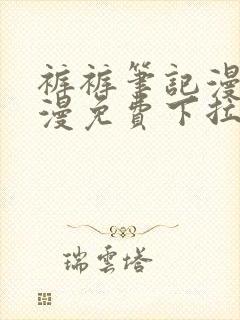 裤裤筆記漫
漫免費下拉
瑞雲塔